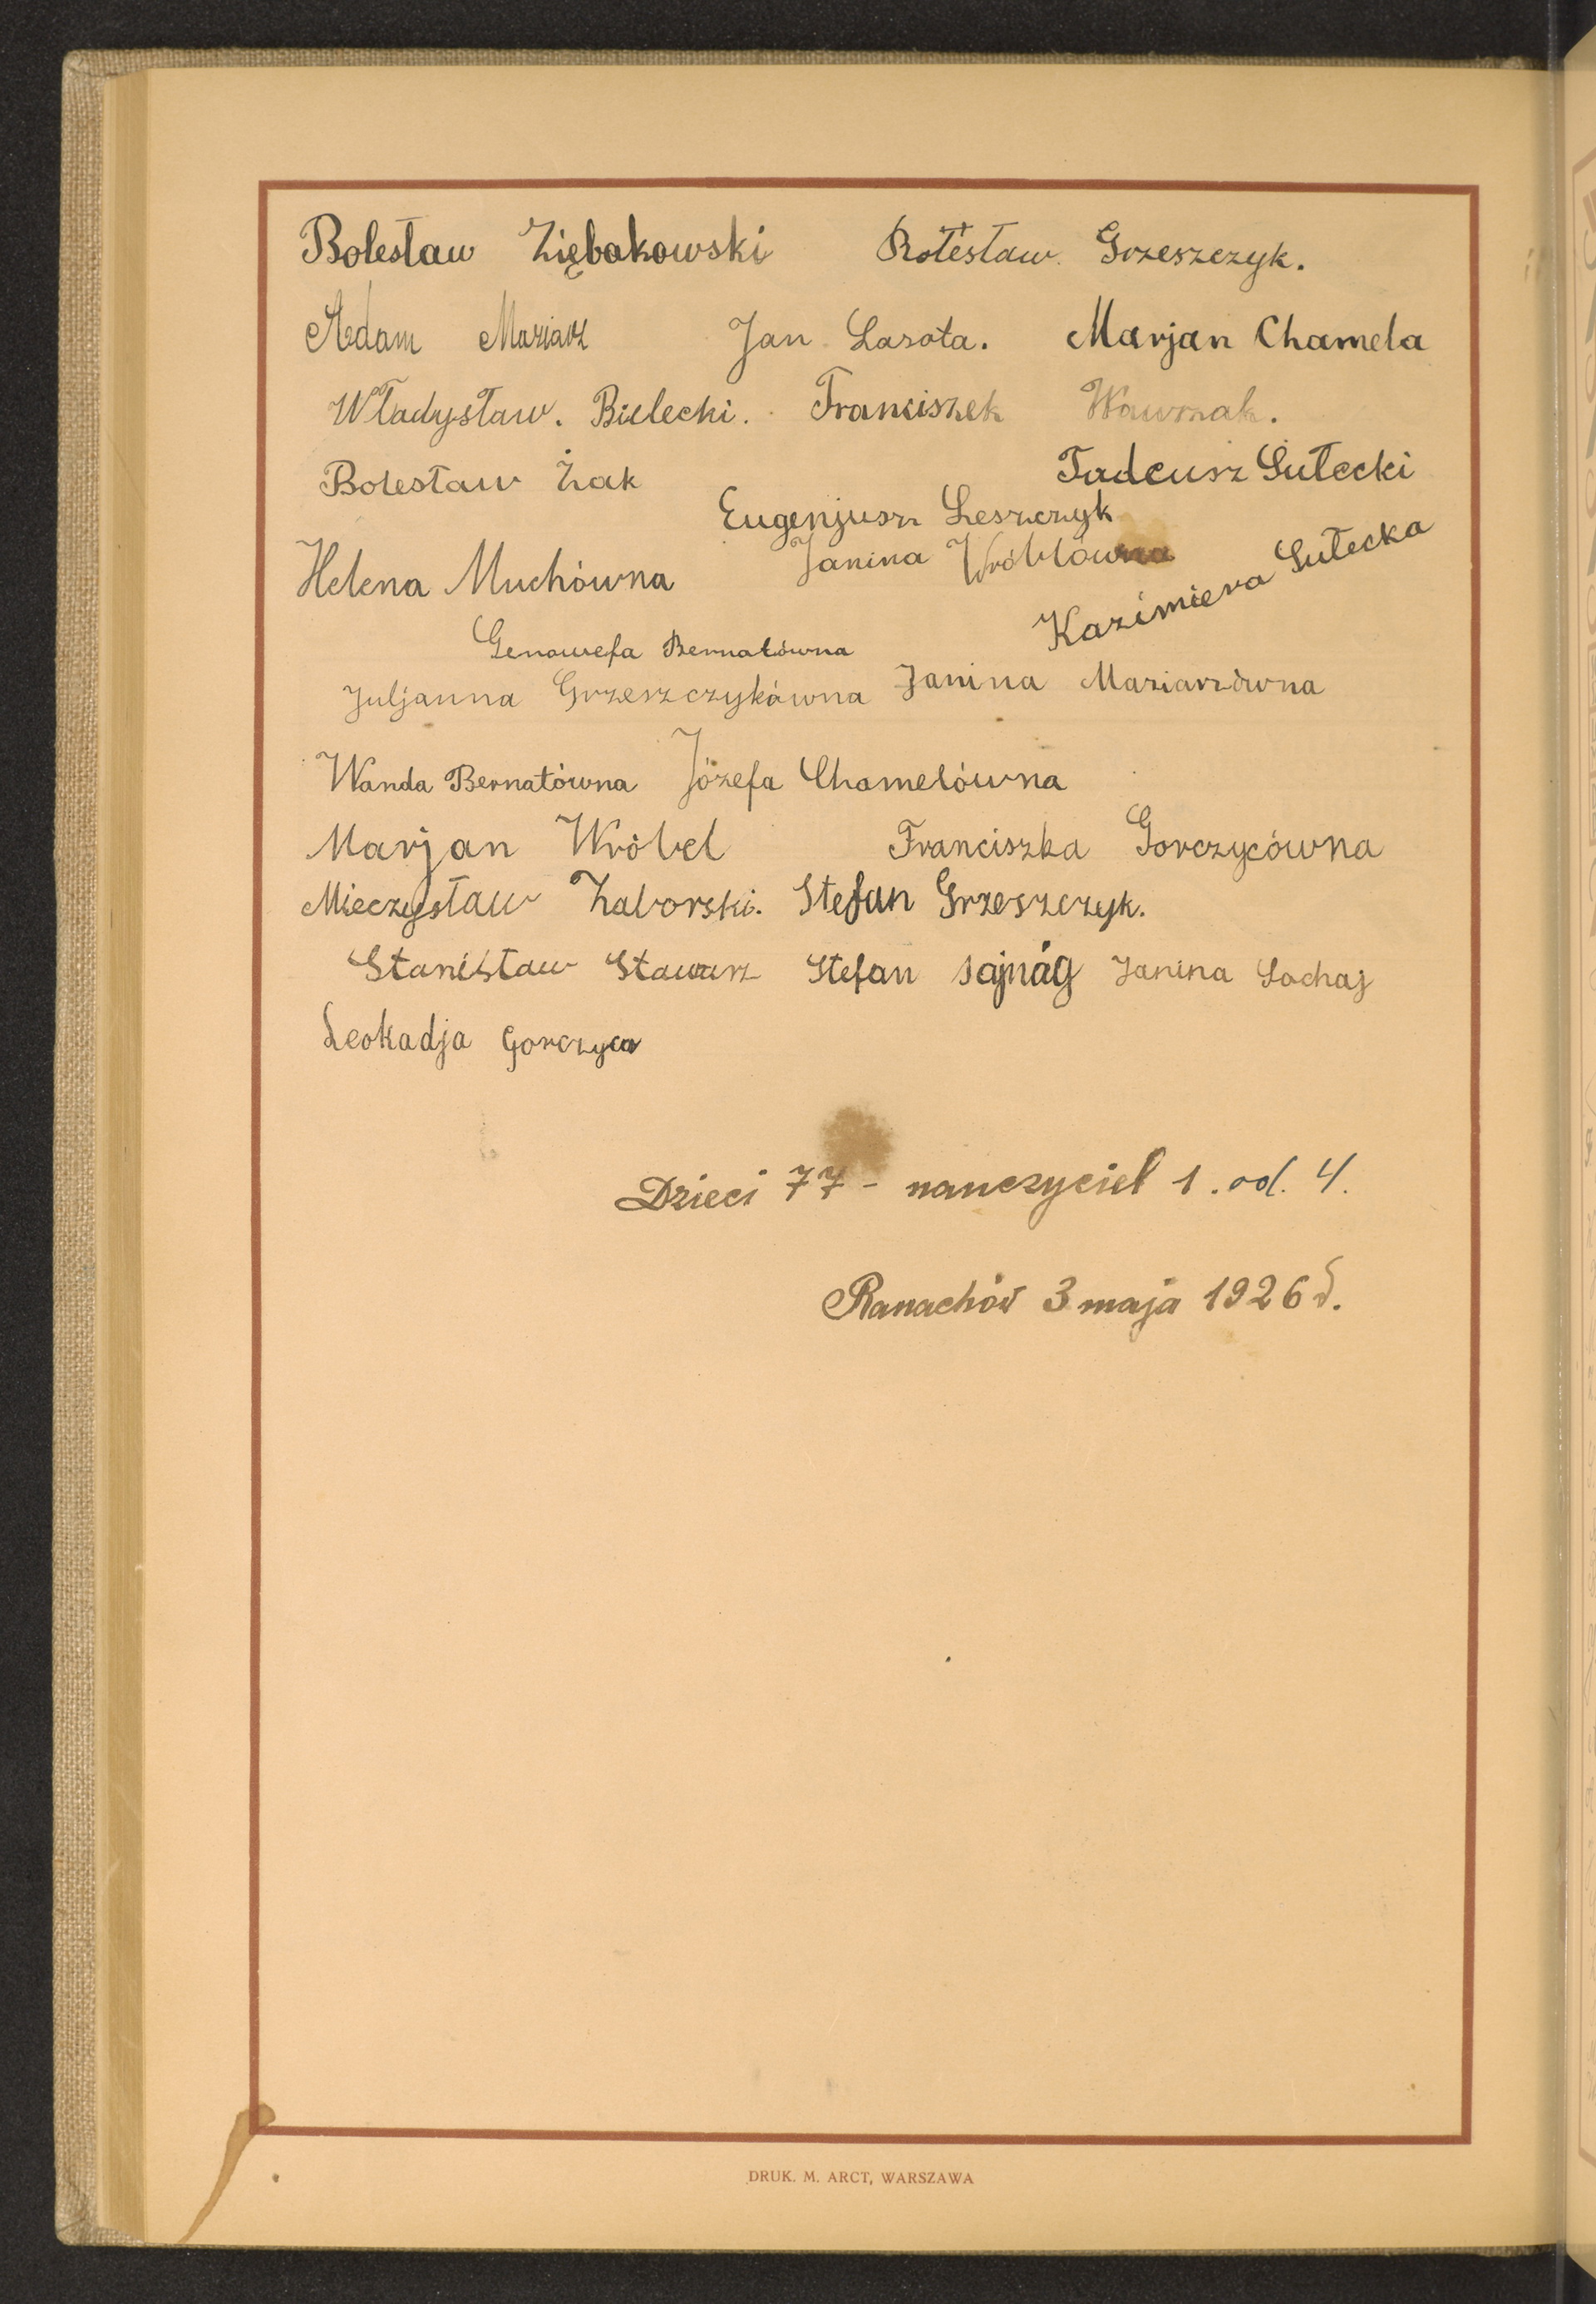 Bolesław Ziębakowski Bołesław Grzeszczyk.
Adam Maziarz Jan Lasota. Marjan Chamela
Władysław. Bielecki. Franciszek Wawrzak.
Bolesław Żak Tadeusz Sułecki
Eugenjusz Leszczyk
Helena Muchówna Janina Wróblówna
Kazimiera Sułecka
Genowefa Bernatówna
Juljanna Grzeszczykówna Janina Maziarzówna
Wanda Bernatówna Józefa Chamelówna
Marjan Wróbel Franciszka Gorczycówna
Mieczysław Zaborski. Stefan Grzeszczyk.
Stanisław Stawarz Stefan Sajnág Janina Sochaj
Leokadja Gorczyca
Dzieci 77 - nauczyciel 1. od. 4.
Ranachów 3 maja 1926 r.
DRUK. M. ARCT, WARSZAWA